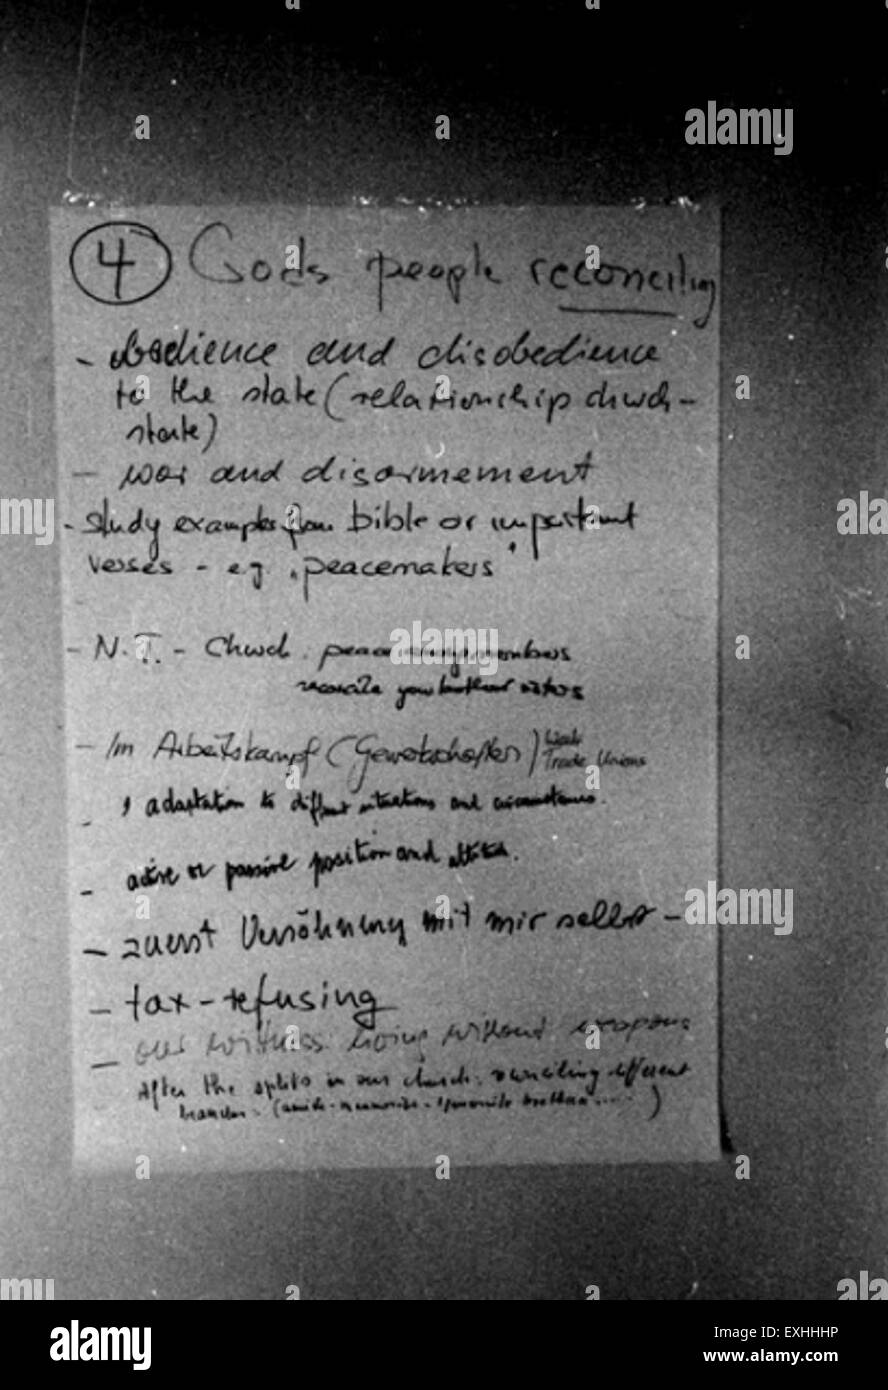 4 Gods people reconciling
- obedience and disobedience
to the state (relationship church-
state)
- war and disarmement
- study examples from bible or important
verses - e.g. "peacemakers"
- N.T. - Church.
reconcile your brother sisters
- Im Arbeitskampf (Gewerkschaften)
Trade Unions
- adaptation to different situations and circumstances.
- active or passive position and attitude.
- zuerst Versöhnung mit mir selbst -
- tax-refusing
- our witness living without weapons
After the splits in our church: reconciling different
branches. (amish-mennonite-
alamy
Image ID: EXHHHP
www.alamy.com